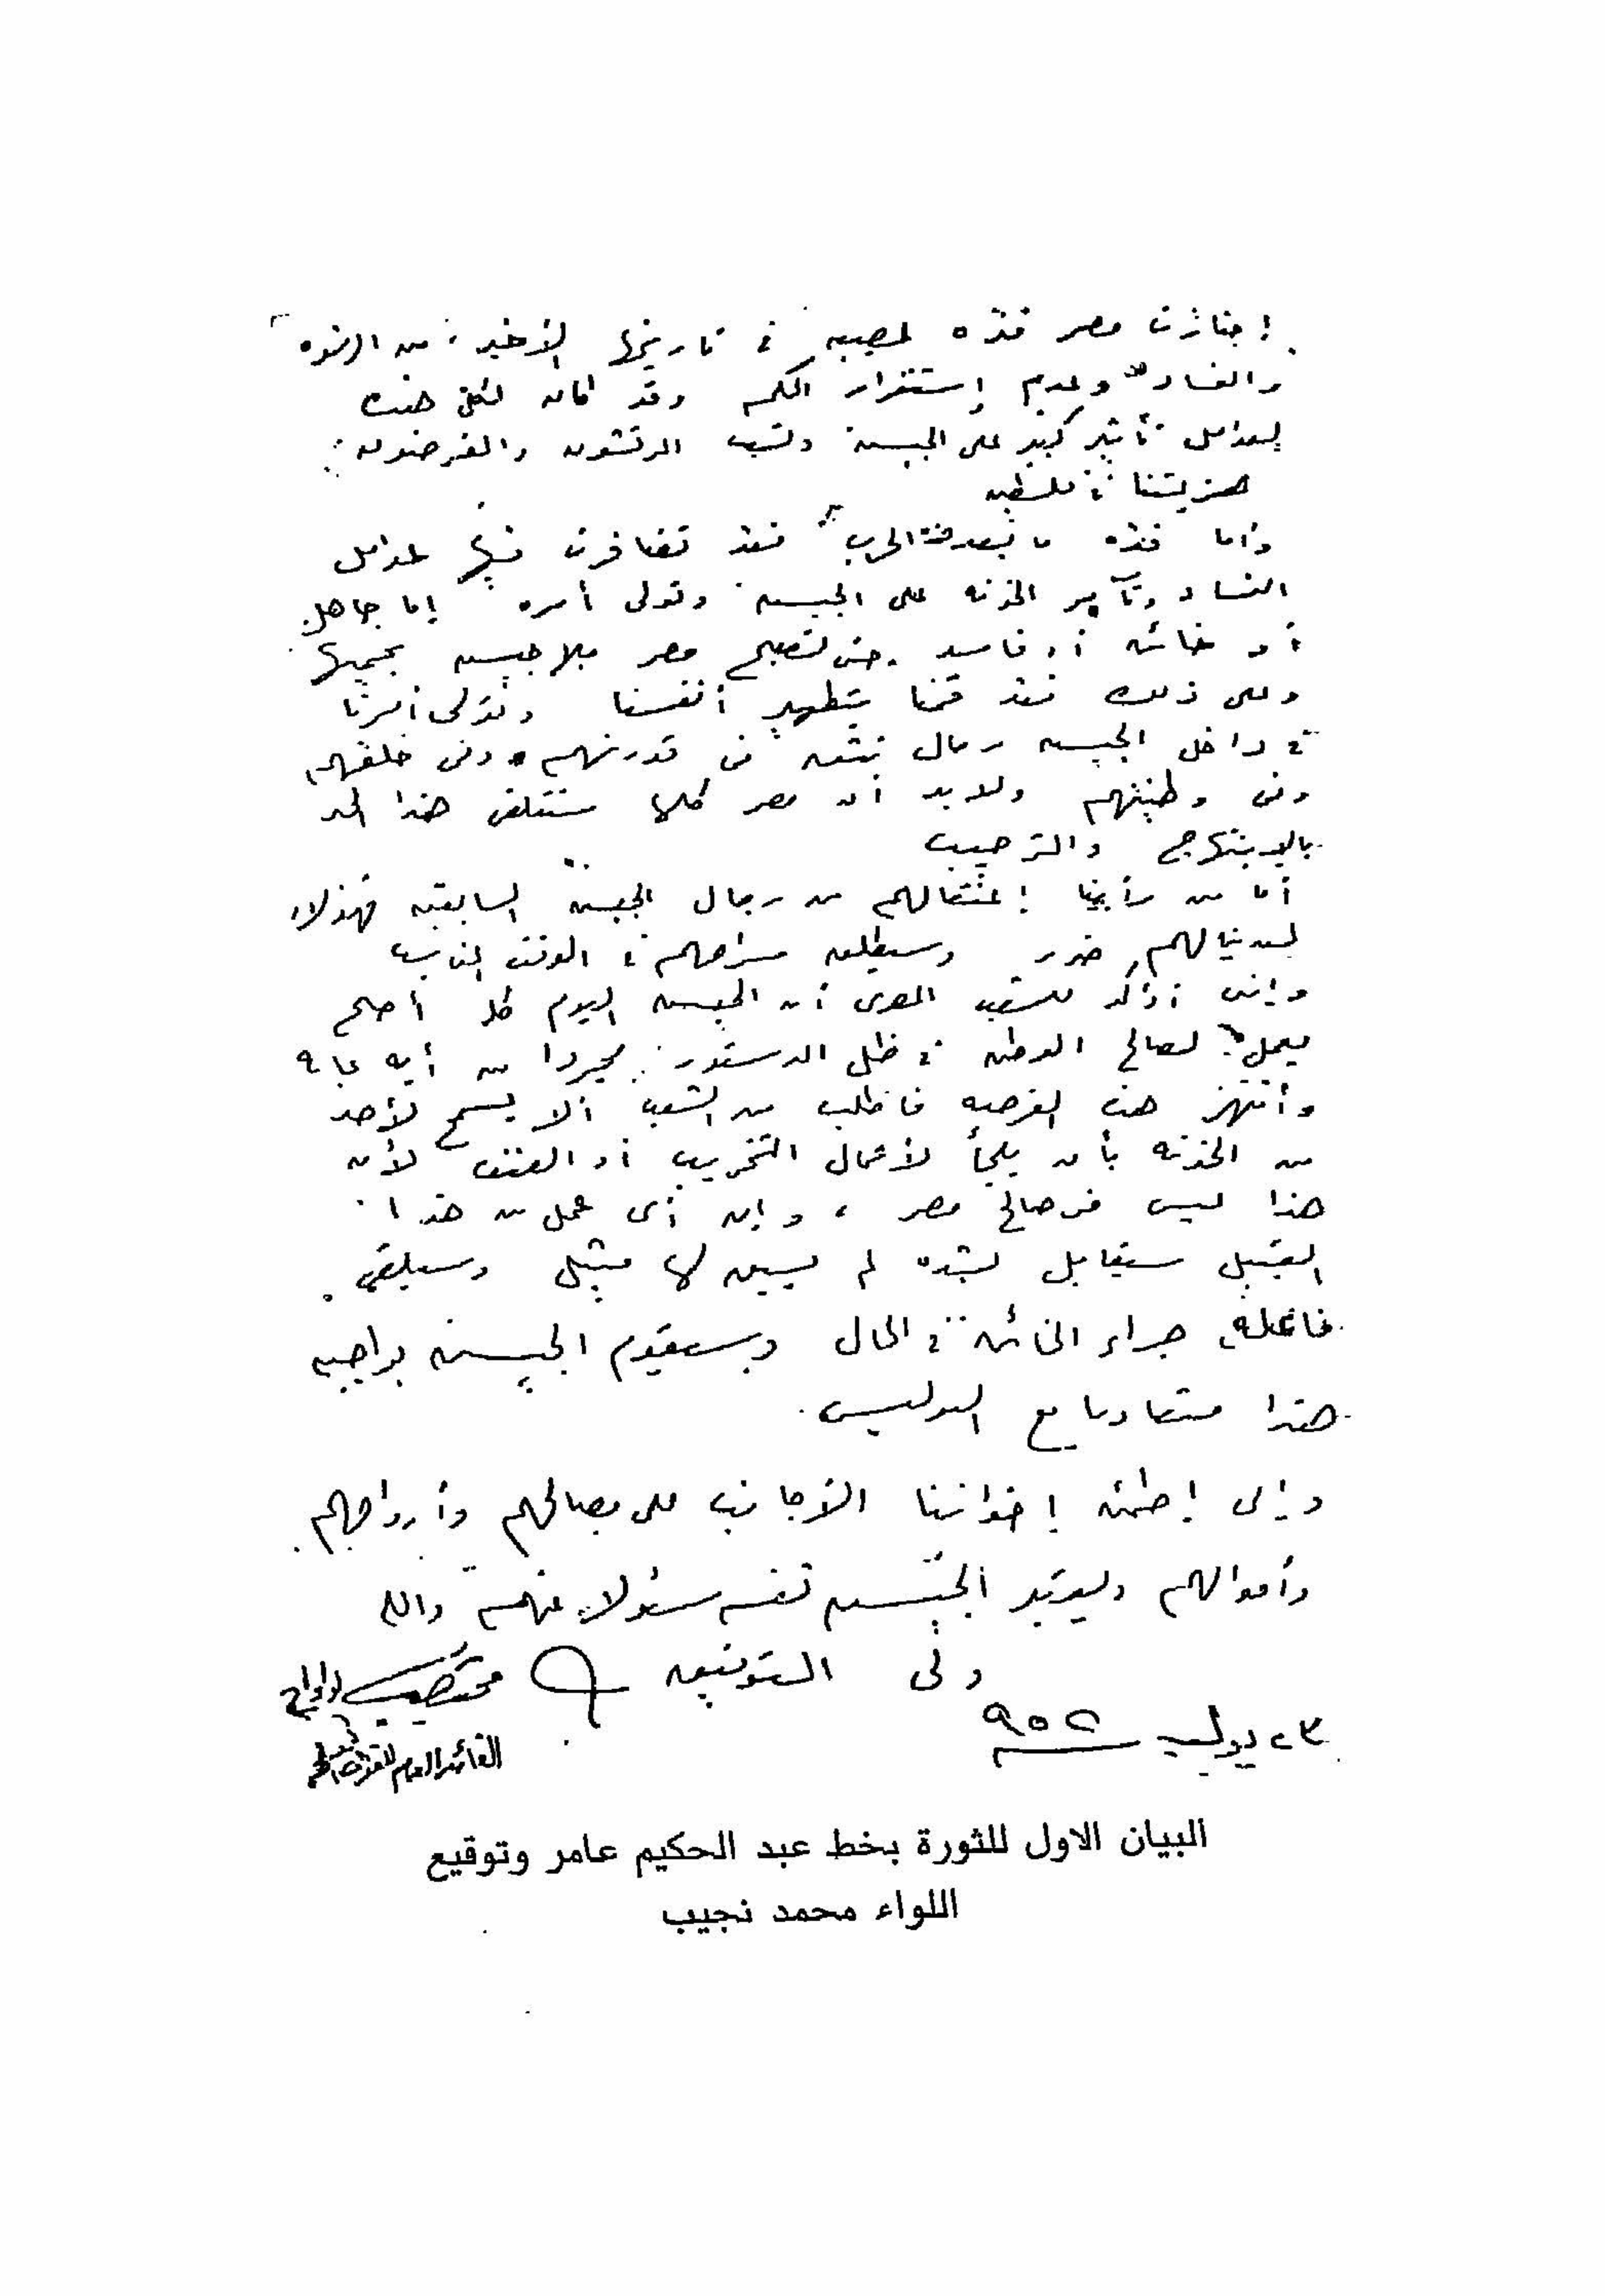 إجتازت مصر فتره عصيبه في تاريخها الأخير من الرشوه
والفساد وعدم إستقرار الحكم وقد كان لكل هذه
العوامل تأثير كبير على الجيش وتسبب المرتشون والمغرضون في
هزيمتنا في فلسطين
وأما فتره ما بعد هذه الحرب فقد تضافرت فيها عوامل
الفساد وتآمر الخونه على الجيش وتولى أمره إما جاهل
أو خائن أو فاسد حتى تصبح مصر بلا جيش يحميها
وعلى ذلك فقد قمنا بتطهير أنفسنا وتولى أمرنا
في داخل الجيش رجال نثق في قدرتهم وفي خلقهم
وفي وطنيتهم ولابد أن مصر كلها ستتلقى هذا الخبر
بالابتهاج والترحيب
أما من رأينا إعتقالهم من رجال الجيش السابقين فهؤلاء
لن ينالهم ضرر وسيطلق سراحهم في الوقت المناسب
وإني أؤكد للشعب المصرى أن الجيش اليوم كله أصبح
يعمل لصالح الوطن في ظل الدستور مجردا من أيه غايه
وأنتهز هذه الفرصه فأطلب من الشعب ألا يسمح لأحد
من الخونه بأن يلجأ لأعمال التخريب أو العنف لأن
هذا ليس في صالح مصر ، وإن أى عمل من هذا
القبيل سيقابل بشده لم يسبق لها مثيل وسيلقى
فاعله جزاء الخائن في الحال وسيقوم الجيش بواجبه
هذا متعاونا مع البوليس
وإنى إطمئن إخواننا الأجانب على مصالحهم وأرواحهم
وأموالهم ويعتبر الجيش نفسه مسئولا عنهم والله
ولى التوفيق
محمد نجيب لواء أ.ح
٢٣ يوليه ٩٥٢
القائد العام للقوات المسلحة
البيان الاول للثورة بخط عبد الحكيم عامر وتوقيع
اللواء محمد نجيب